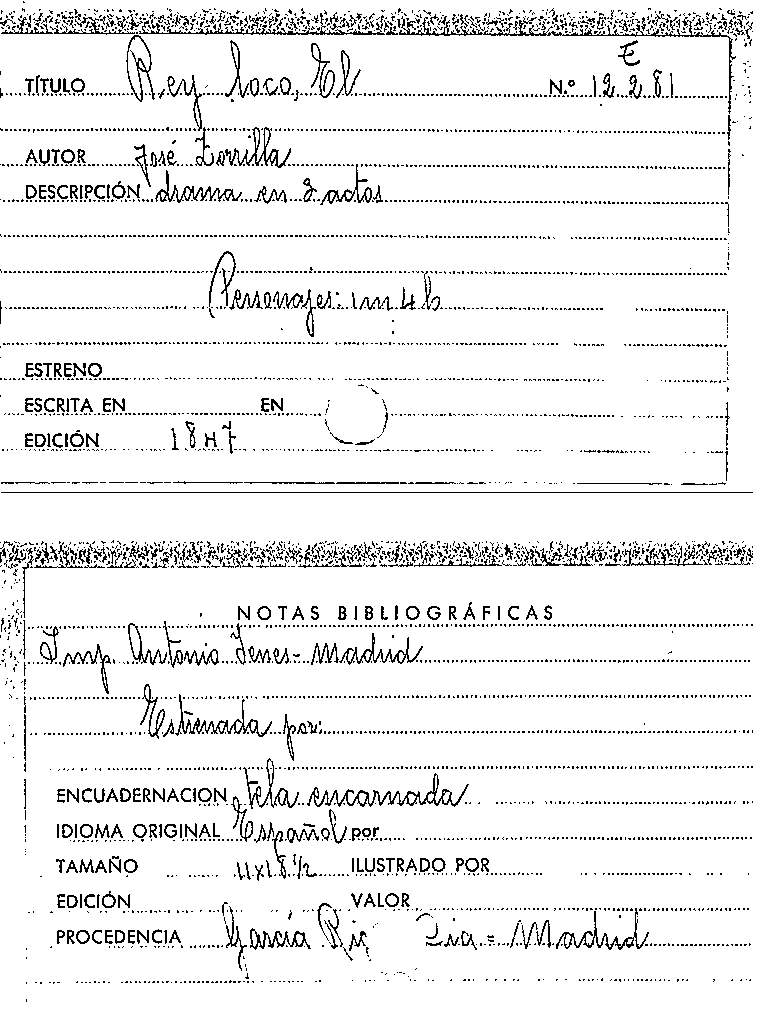 E
TÍTULO Rey loco, El N.º 12281
AUTOR José Zorrilla
DESCRIPCIÓN drama en 3 actos
Personajes: 1m 4h
ESTRENO
ESCRITA EN EN
EDICIÓN 1847
NOTAS BIBLIOGRÁFICAS
Imp. Antonio Yenes - Madrid
Estrenada por:
ENCUADERNACION tela encarnada
IDIOMA ORIGINAL Español por
TAMAÑO 11x18 ½ ILUSTRADO POR
EDICIÓN VALOR
PROCEDENCIA García Rico = Madrid